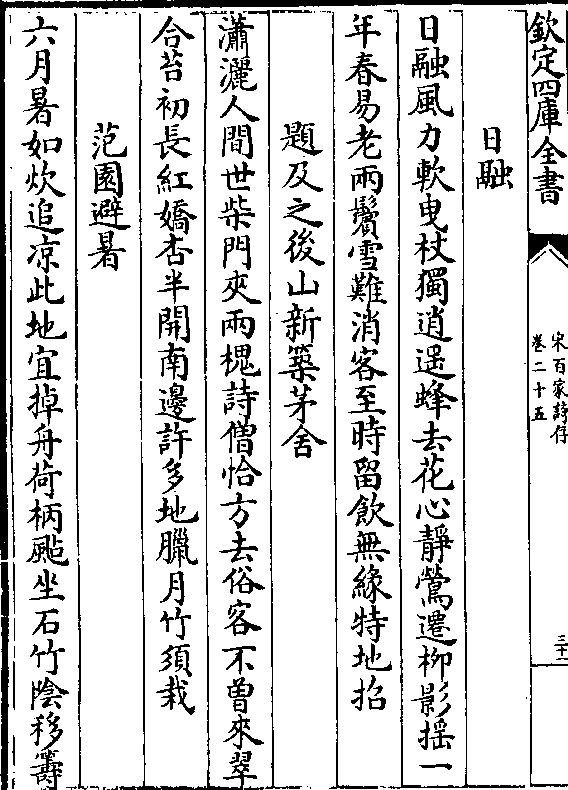 欽定四庫全書
宋百家詩存
卷二十五
三十二
日融
日融風力軟曳杖獨逍遥蜂去花心靜鶯遷柳影揺一
年春易老兩鬢雪難消客至時留飲無緣特地招
題及之後山新築茅舍
瀟灑人間世柴門夾兩槐詩僧恰方去俗客不曽來翠
合苔初長紅嬌杏半開南邊許多地臘月竹須栽
范園避暑
六月暑如炊追凉此地宜掉舟荷柄颭坐石竹陰移籌